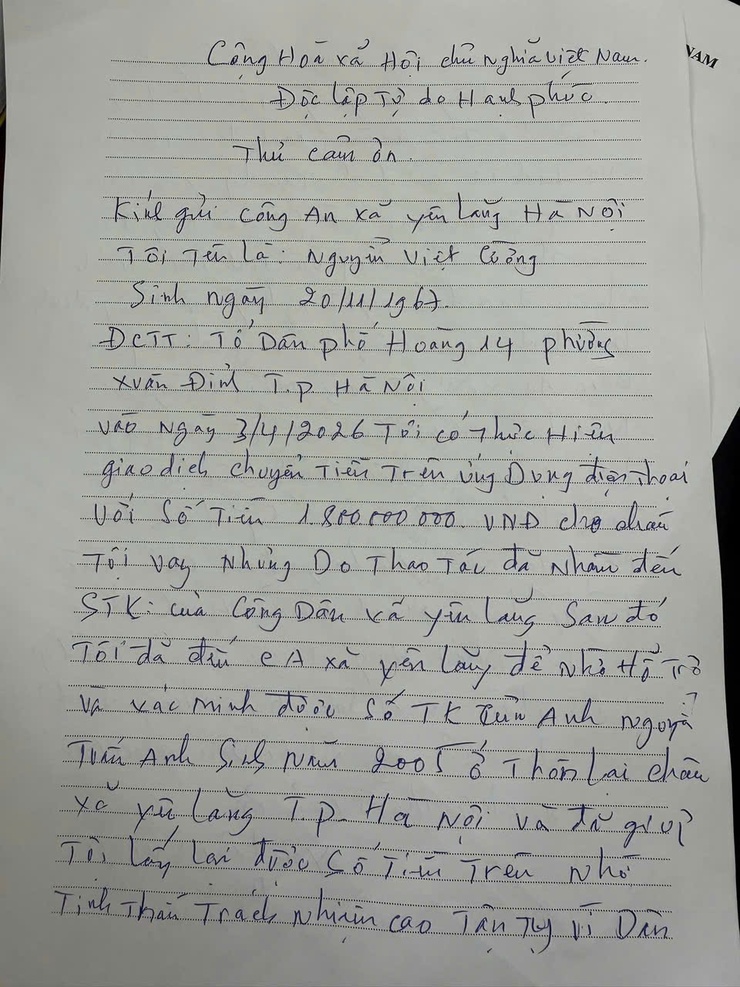 NAM
Cộng Hoà xã Hội chủ Nghĩa Việt Nam.
Độc lập Tự do Hạnh phúc.
Thư cảm ơn.
Kính gửi Công An xã yên Lãng Hà Nội
Tôi Tên là: Nguyễn Việt Cường
Sinh ngày 20/11/1967.
ĐCTT: Tổ Dân phố Hoàng 14 phường
Xuân Đỉnh T.p Hà Nội
vào Ngày 3/4/2026 Tôi có Thực Hiện
giao dịch chuyển Tiền Trên ứng Dụng điện Thoại
Với Số Tiền 1.800.000.000. VNĐ cho cháu
Tôi vay Nhưng Do Thao Tác đã Nhầm đến
STK: của Công Dân xã yên Lãng Sau đó
Tôi đã đến CA xã yên Lãng để Nhờ Hỗ Trợ
và xác minh được số TK của Anh Nguyễn
Tuấn Anh Sinh Năm 2005 ở Thôn Lai châu
xã yên Lãng T.p. Hà Nội và đã giúp
Tôi lấy lại được Số Tiền Trên Nhờ
Tinh Thần Trách Nhiệm cao Tận Tụy Vì Dân